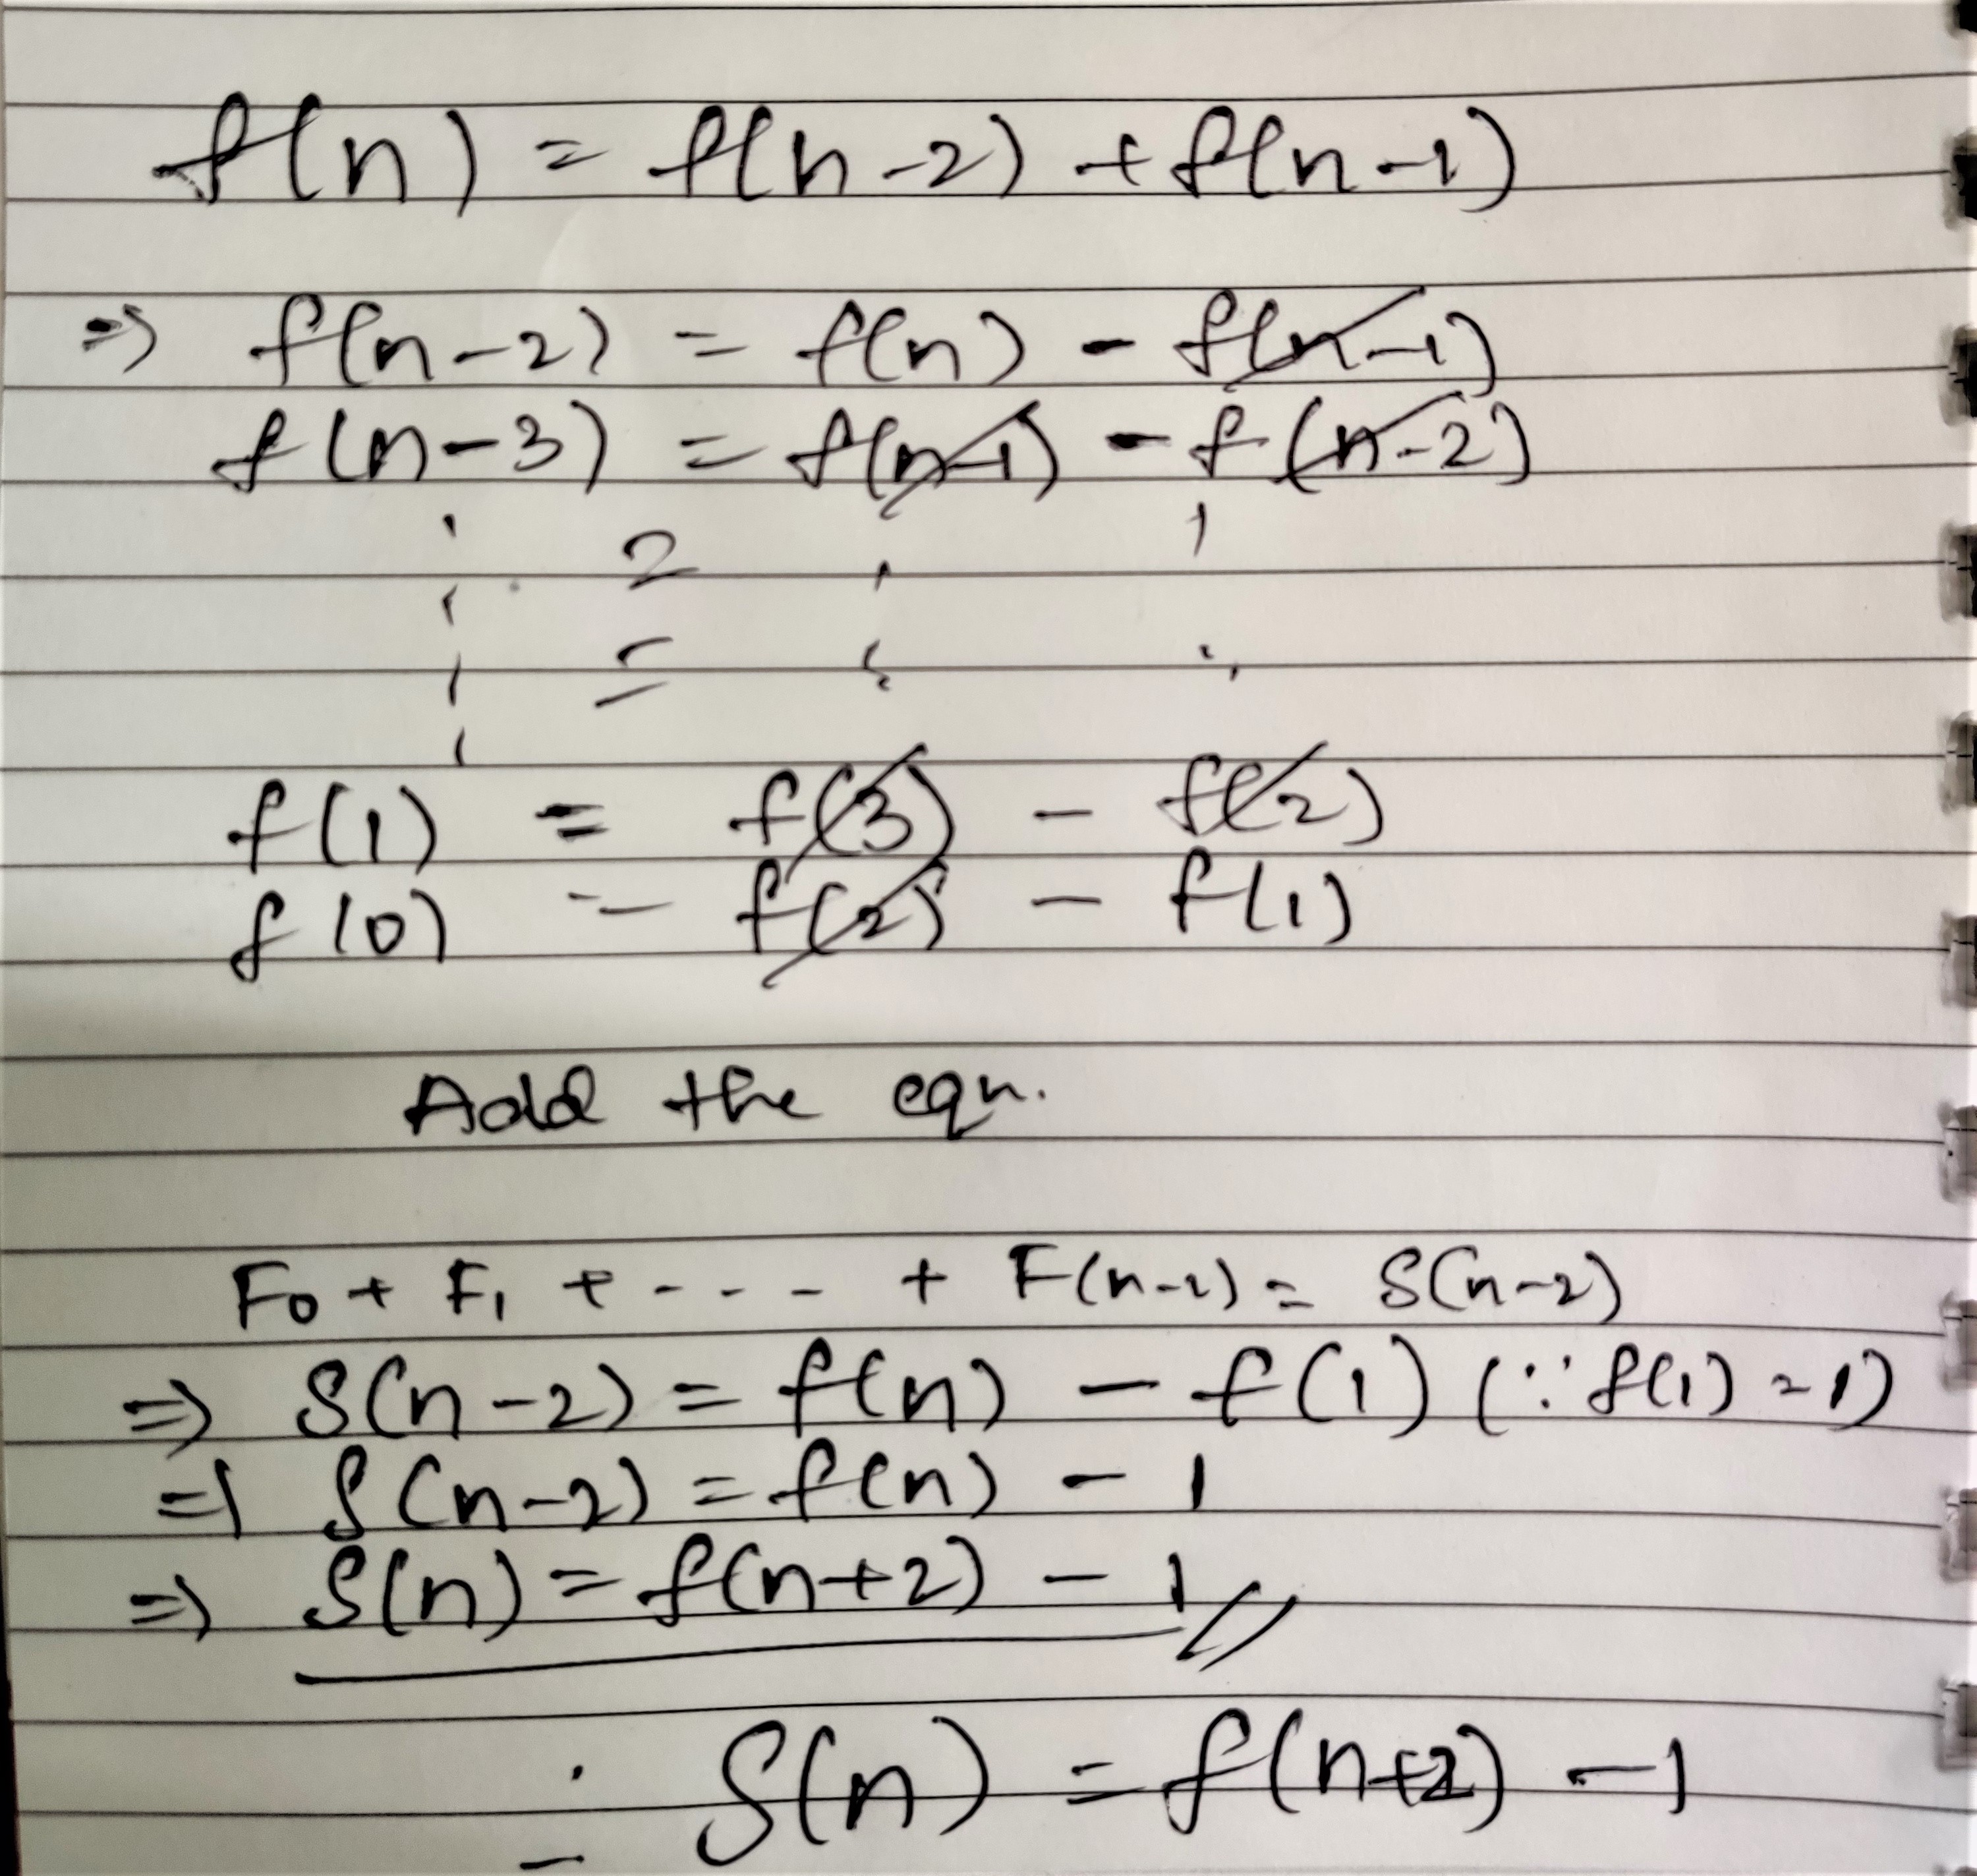 f(n) = f(n-2) + f(n-1)
⇒ f(n-2) = f(n) - f(n-1)
f(n-3) = f(n-1) - f(n-2)
f(1) = f(3) - f(2)
f(0) = f(2) - f(1)
Add the eqn.
F0 + F1 + - - - + F(n-2) = S(n-2)
⇒ S(n-2) = f(n) - f(1) (∵ f(1) = 1)
⇒ S(n-2) = f(n) - 1
⇒ S(n) = f(n+2) - 1 //
∴ S(n) = f(n+2) - 1